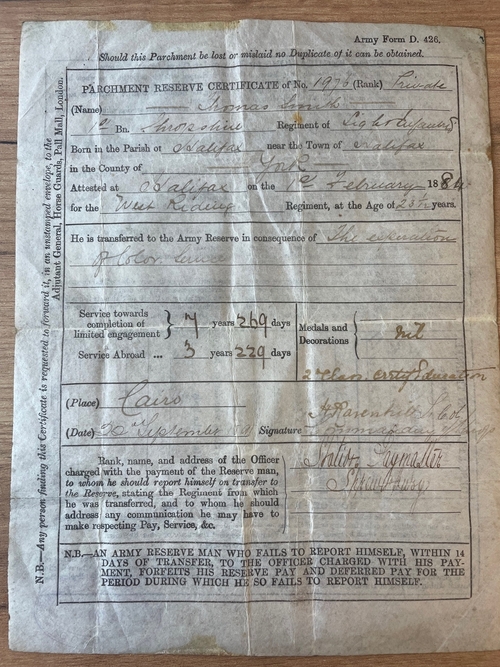 Army Form D. 426.
Should this Parchment be lost or mislaid no Duplicate of it can be obtained.
PARCHMENT RESERVE CERTIFICATE of No. 1976 (Rank) Private
(Name) Thomas Smith
1st Bn. Shropshire Regiment of Light Infantry
Born in the Parish of Halifax near the Town of Halifax
in the County of York
Attested at Halifax on the 1st February 1884
for the West Riding Regiment, at the Age of years.
He is transferred to the Army Reserve in consequence of The
of Color service
Service towards completion of limited engagement } 7 years 269 days
Service Abroad ... 3 years 229 days
Medals and Decorations } nil
2nd Class. Certif Education
(Place) Cairo
(Date) September Signature
Commanding
Rank, name, and address of the Officer
charged with the payment of the Reserve man,
to whom he should report himself on transfer to
the Reserve, stating the Regiment from which
he was transferred, and to whom he should
address any communication he may have to
make respecting Pay, Service, &c.
Paymaster
Shrewsbury
N.B.—AN ARMY RESERVE MAN WHO FAILS TO REPORT HIMSELF, WITHIN 14
DAYS OF TRANSFER, TO THE OFFICER CHARGED WITH HIS PAY-
MENT, FORFEITS HIS RESERVE PAY AND DEFERRED PAY FOR THE
PERIOD DURING WHICH HE SO FAILS TO REPORT HIMSELF.
N.B.—Any person finding this Certificate is requested to forward it, in an unstamped envelope, to the
Adjutant General, Horse Guards, Pall Mall, London.